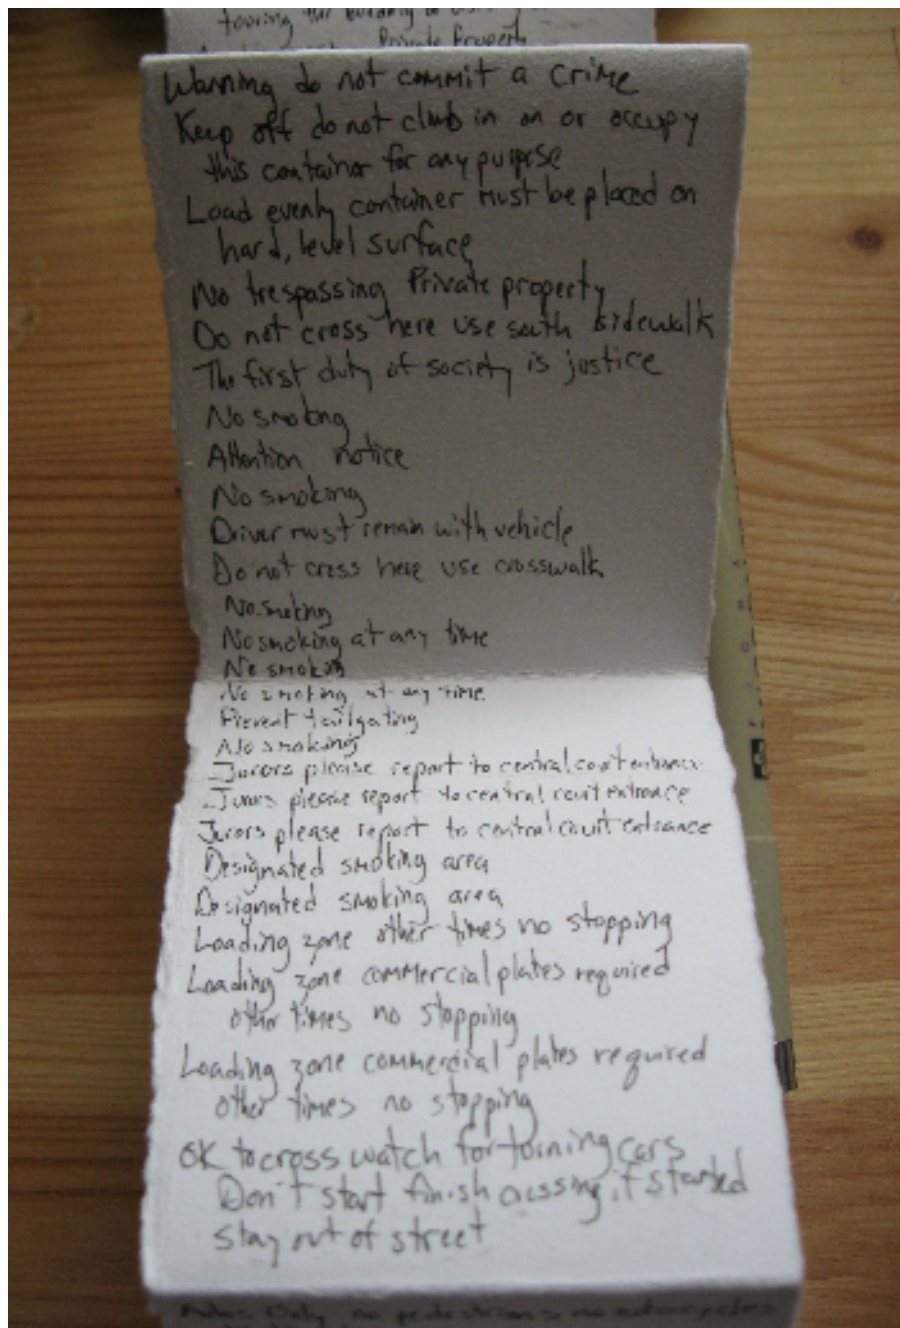 touring the building
Private Property
Warning do not commit a crime
Keep off do not climb in on or occupy
this container for any purpose
Load evenly container must be placed on
hard, level surface
No trespassing Private property
Do not cross here use south sidewalk
The first duty of society is justice
No smoking
Attention notice
No smoking
Driver must remain with vehicle
Do not cross here use crosswalk
No smoking
No smoking at any time
No smoking
No smoking at any time
Prevent tailgating
No smoking
Jurors please report to central court entrance
Jurors please report to central court entrance
Jurors please report to central court entrance
Designated smoking area
Designated smoking area
Loading zone other times no stopping
Loading zone commercial plates required
other times no stopping
Loading zone commercial plates required
other times no stopping
OK to cross watch for turning cars
Don't start finish crossing if started
stay out of street
Autos Only no pedestrians no motorcycles